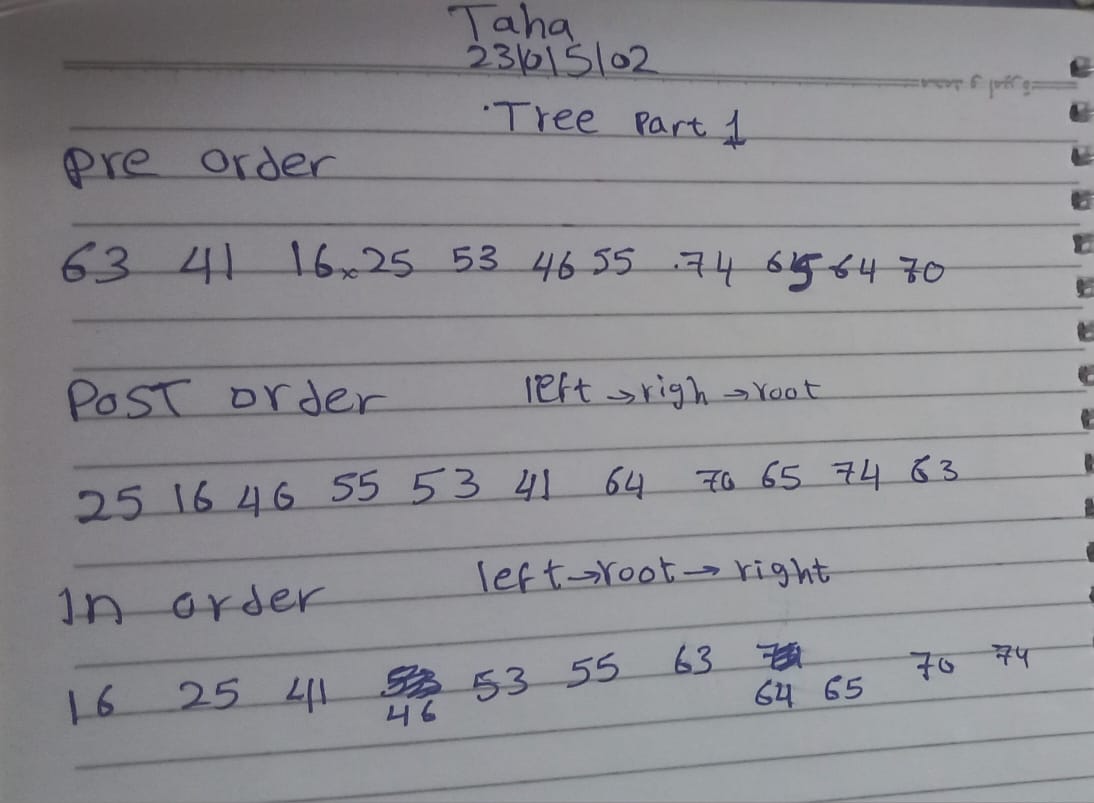 Taha
23/015/02
Tree Part 1
Pre order
63 41 16 25 53 46 55 74 65 64 70
Post order left → righ → root
25 16 46 55 53 41 64 70 65 74 63
In order left → root → right
16 25 41 46 53 55 63 64 65 70 74